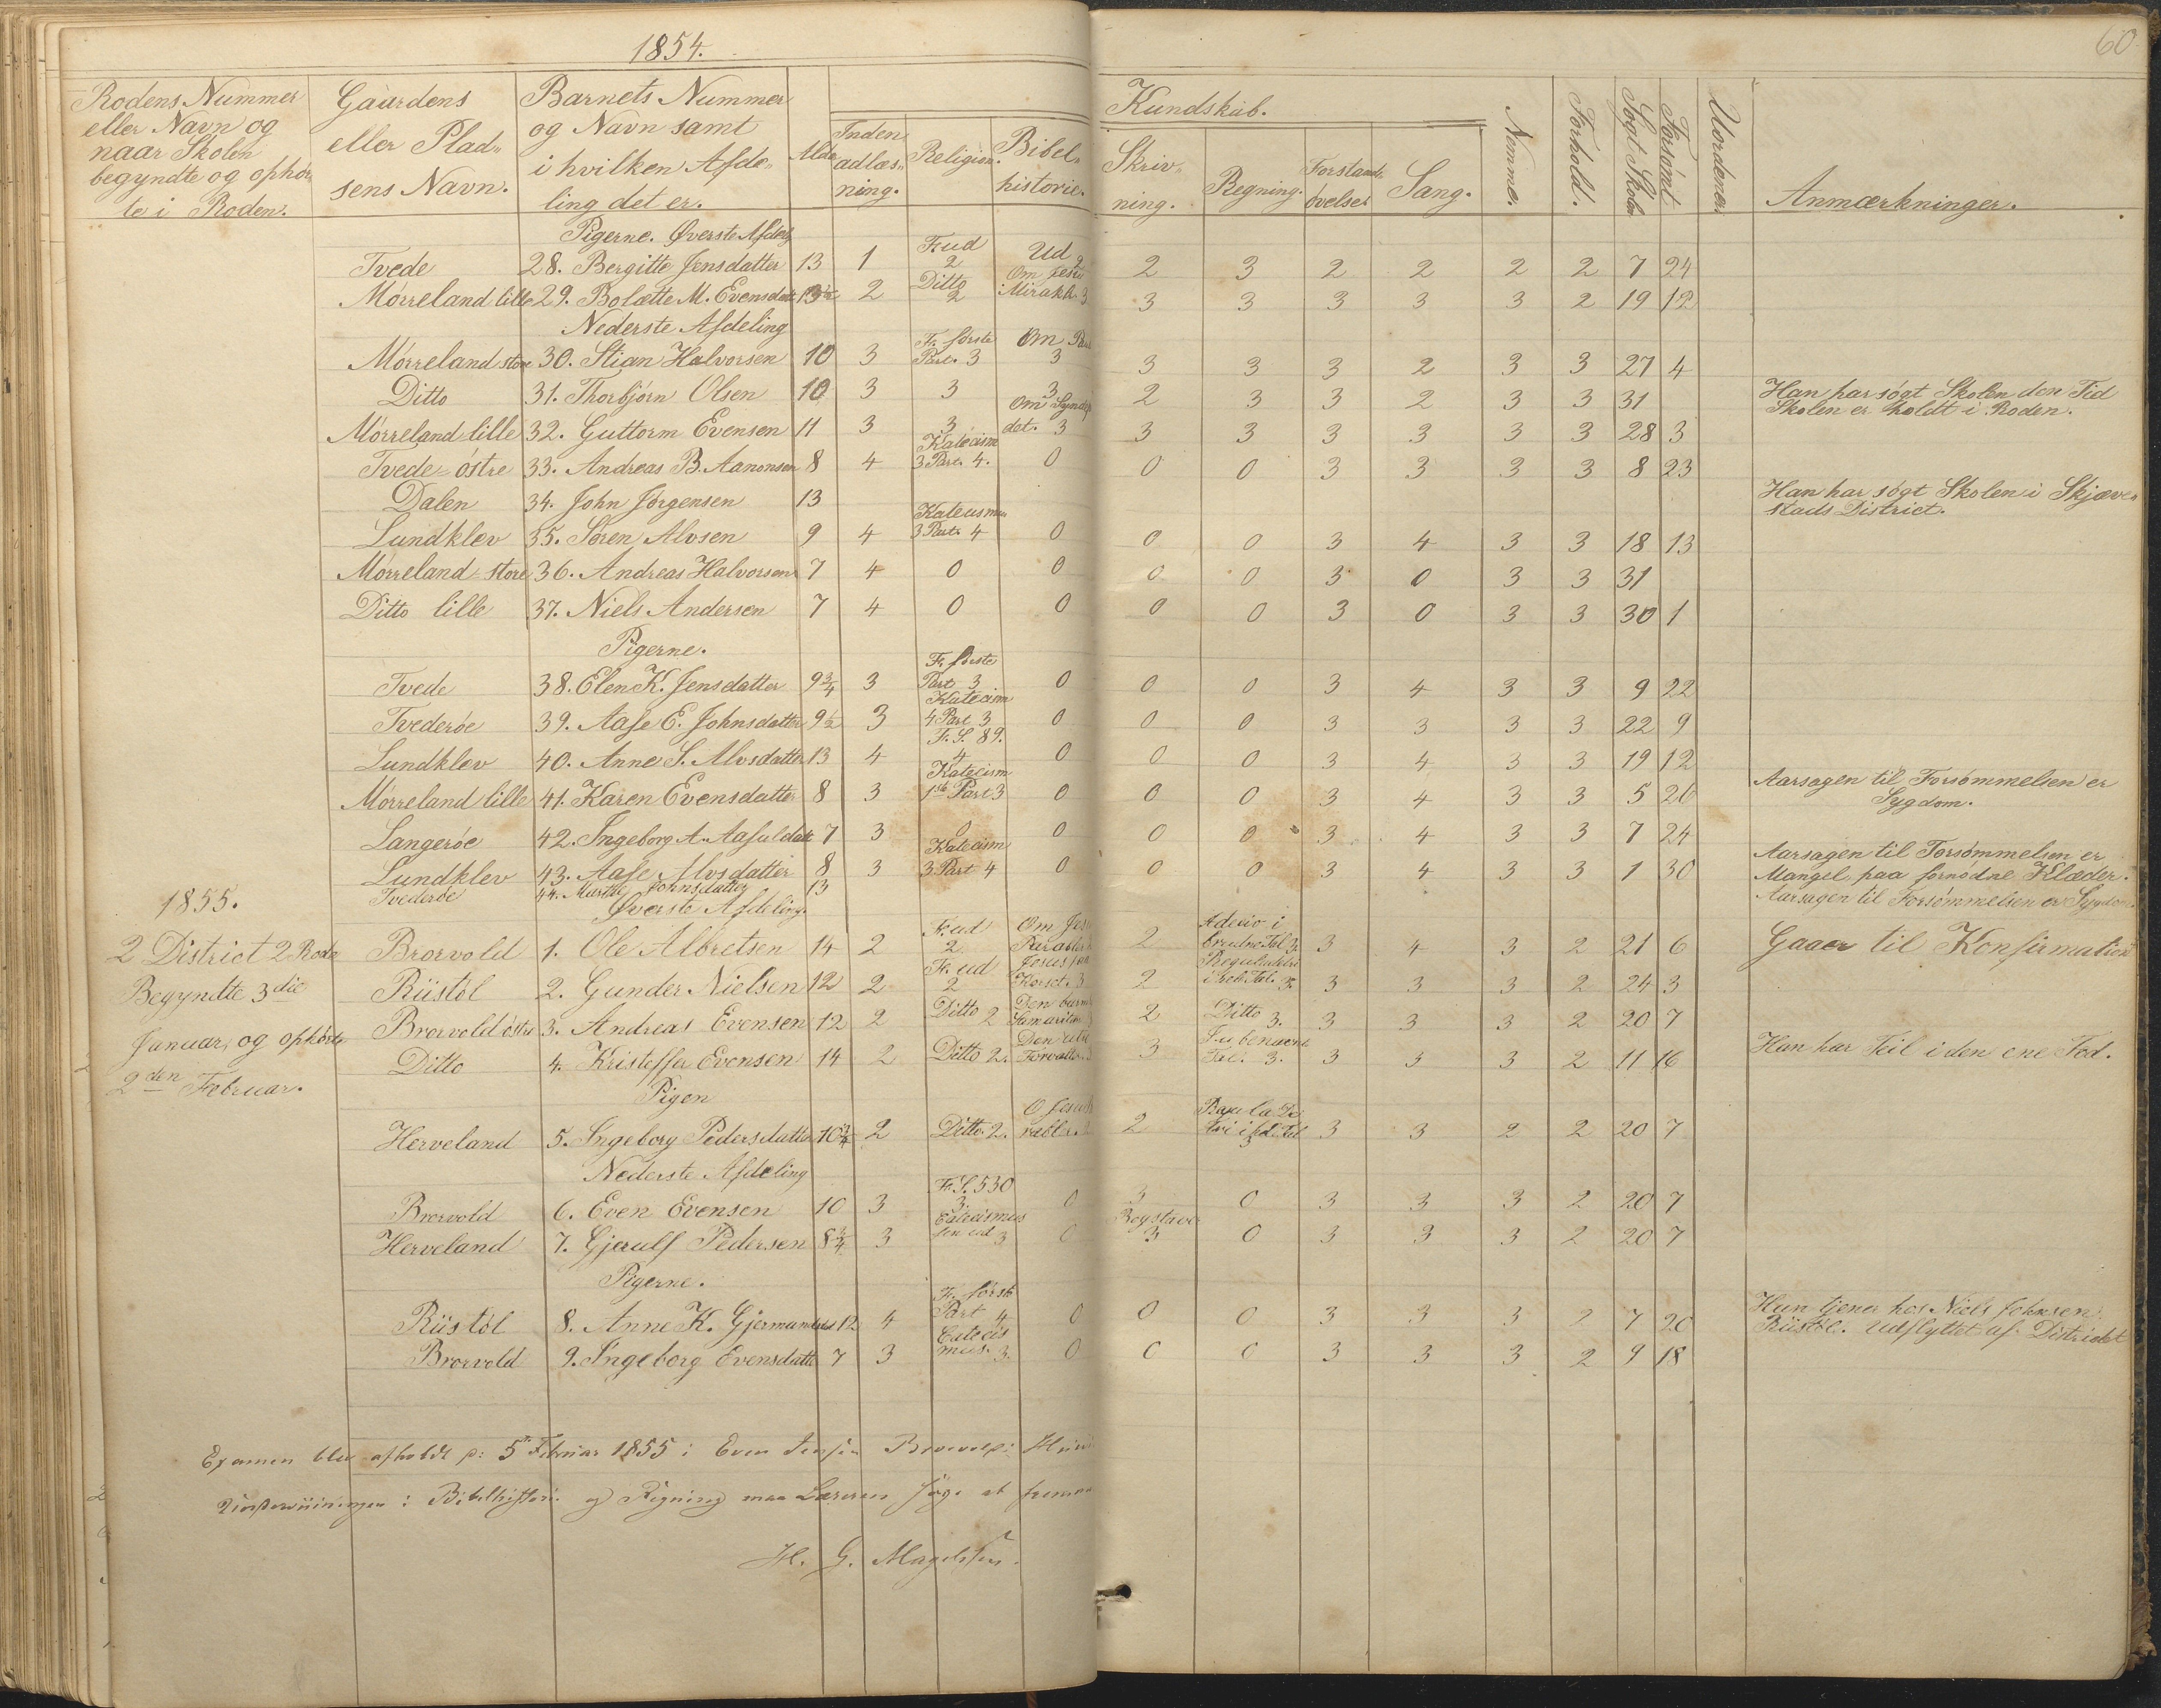 1854.
60
Rodens Nummer
eller Navn og
naar Skolen
begyndte og ophør
te i Roden.
Gaardens
eller Plad-
sens Navn.
Barnets Nummer
og Navn samt
i hvilken Afde-
ling det er.
Alder
Inden
adlæs-
ning.
Religion.
Bibel-
historie.
Kundskab.
Skriv-
ning.
Regning.
Forstands
øvelser
Sang.
Nemme.
Forhold.
Søgt Skolen
Forsømt
Uordener
Anmærkninger.
Pigerne. Øverste Afdeling
Tvede 28. Bergitte Jensdatter 13 1 F. ud 2 Ud 2 2 3 2 2 2 2 7 24
Mørreland lille 29. Bolætte M. Evensdatt 2 Ditto 2 Om Jesu Mirakl. 3 3 3 3 3 3 2 19 12
Nederste Afdeling
Mørreland store 30. Stian Halvorsen 10 3 F. første Part. 3 Om 3 3 3 3 2 3 3 27 4
Ditto 31. Thorbjørn Olsen 10 3 3 3 2 3 3 2 3 3 31 Han har søgt Skolen den Tid
Skolen er holdt i Roden.
Mørreland lille 32. Guttorm Evensen 11 3 3 Om Syndflo det. 3 3 3 3 3 3 3 28 3
Tvede østre 33. Andreas B. Aanonsen 8 4 Katecism 3 Part. 4. 0 0 0 3 3 3 3 8 23
Dalen 34. John Jørgensen 13 Han har søgt Skolen i Skjæve-
stads District.
Lundklev 35. Søren Alvsen 9 4 Katecismus 3 Part. 4 0 0 0 3 4 3 3 18 13
Mørreland store 36. Andreas Halvorsen 7 4 0 0 0 0 3 0 3 3 31
Ditto lille 37. Niels Andersen 7 4 0 0 0 0 3 0 3 3 30 1
Pigerne.
Tvede 38. Elen K. Jensdatter 9¾ 3 F. første Part 3 0 0 0 3 4 3 3 9 22
Tvederøe 39. Aase E. Johnsdatter 9½ 3 Katecism 4 Part 3 0 0 0 3 3 3 3 22 9
Lundklev 40. Anne S. Alvsdatter 13 4 F. S. 89. 4 0 0 0 3 4 3 3 19 12
Mørreland lille 41. Karen Evensdatter 8 3 Katecism 1ste Part 3 0 0 0 3 4 3 3 5 26 Aarsagen til Forsømmelsen er
Sygdom.
Langerøe 42. Ingeborg A. Aasuldatt 7 3 0 0 0 0 3 4 3 3 7 24
Lundklev 43. Aase Alvsdatter 8 3 Katecism 3 Part 4 0 0 0 3 4 3 3 1 30 Aarsagen til Forsømmelsen er
Mangel paa fornødne Klæder.
Tvederøe 44. Marthe Johnsdatter 13 Aarsagen til Forsømmelsen er Sygdom.
1855.
2 District 2 Rode
Begyndte 3die
Januar, og ophørte
2den Februar.
Øverste Afdeling.
Brorvold 1. Ole Albretsen 14 2 F. ud 2 Om Jesu Parabler 2 3 4 3 2 21 6 Gaaer til Konfirmation
Riistøl 2. Gunder Nielsen 12 2 F. ud 2 Jesus paa Korset. 3 2 3 3 3 2 24 3
Brorvold østre 3. Andreas Evensen 12 2 Ditto 2 Den barm Samaritan 2 Ditto 3. 3 3 3 2 20 7
Ditto 4. Kristoffer Evensen 14 2 Ditto 2. Den Forvalter. 3 3. 3 3 3 2 11 16 Han har Teil i den ene Fod.
Pigen
Herveland 5. Ingeborg Pedersdatter 10¾ 2 Ditto. 2. 2 3 3 2 2 20 7
Nederste Afdeling
Brorvold 6. Even Evensen 10 3 F. S. 530 3. 0 3 0 3 3 3 2 20 7
Herveland 7. Gjeruls Pedersen 8¾ 3 Catecismus 3 0 Bogstaver 3 0 3 3 3 2 20 7
Pigerne.
Riistøl 8. Anne K. Gjermunds 12 4 F. første Part 4 0 0 0 3 3 3 2 7 20 Hun tjener hos Niels Johnsen
Riistøl. Udflyttet af Districtet
Brorvold 9. Ingeborg Evensdatt 7 3 Catecis mus. 3. 0 0 0 3 3 3 2 9 18
Examen blev afholdt d: 5te Februar 1855 i Even
i Bibelhistorie og Regning maa Læreren søge at
H. G. Magelssen.